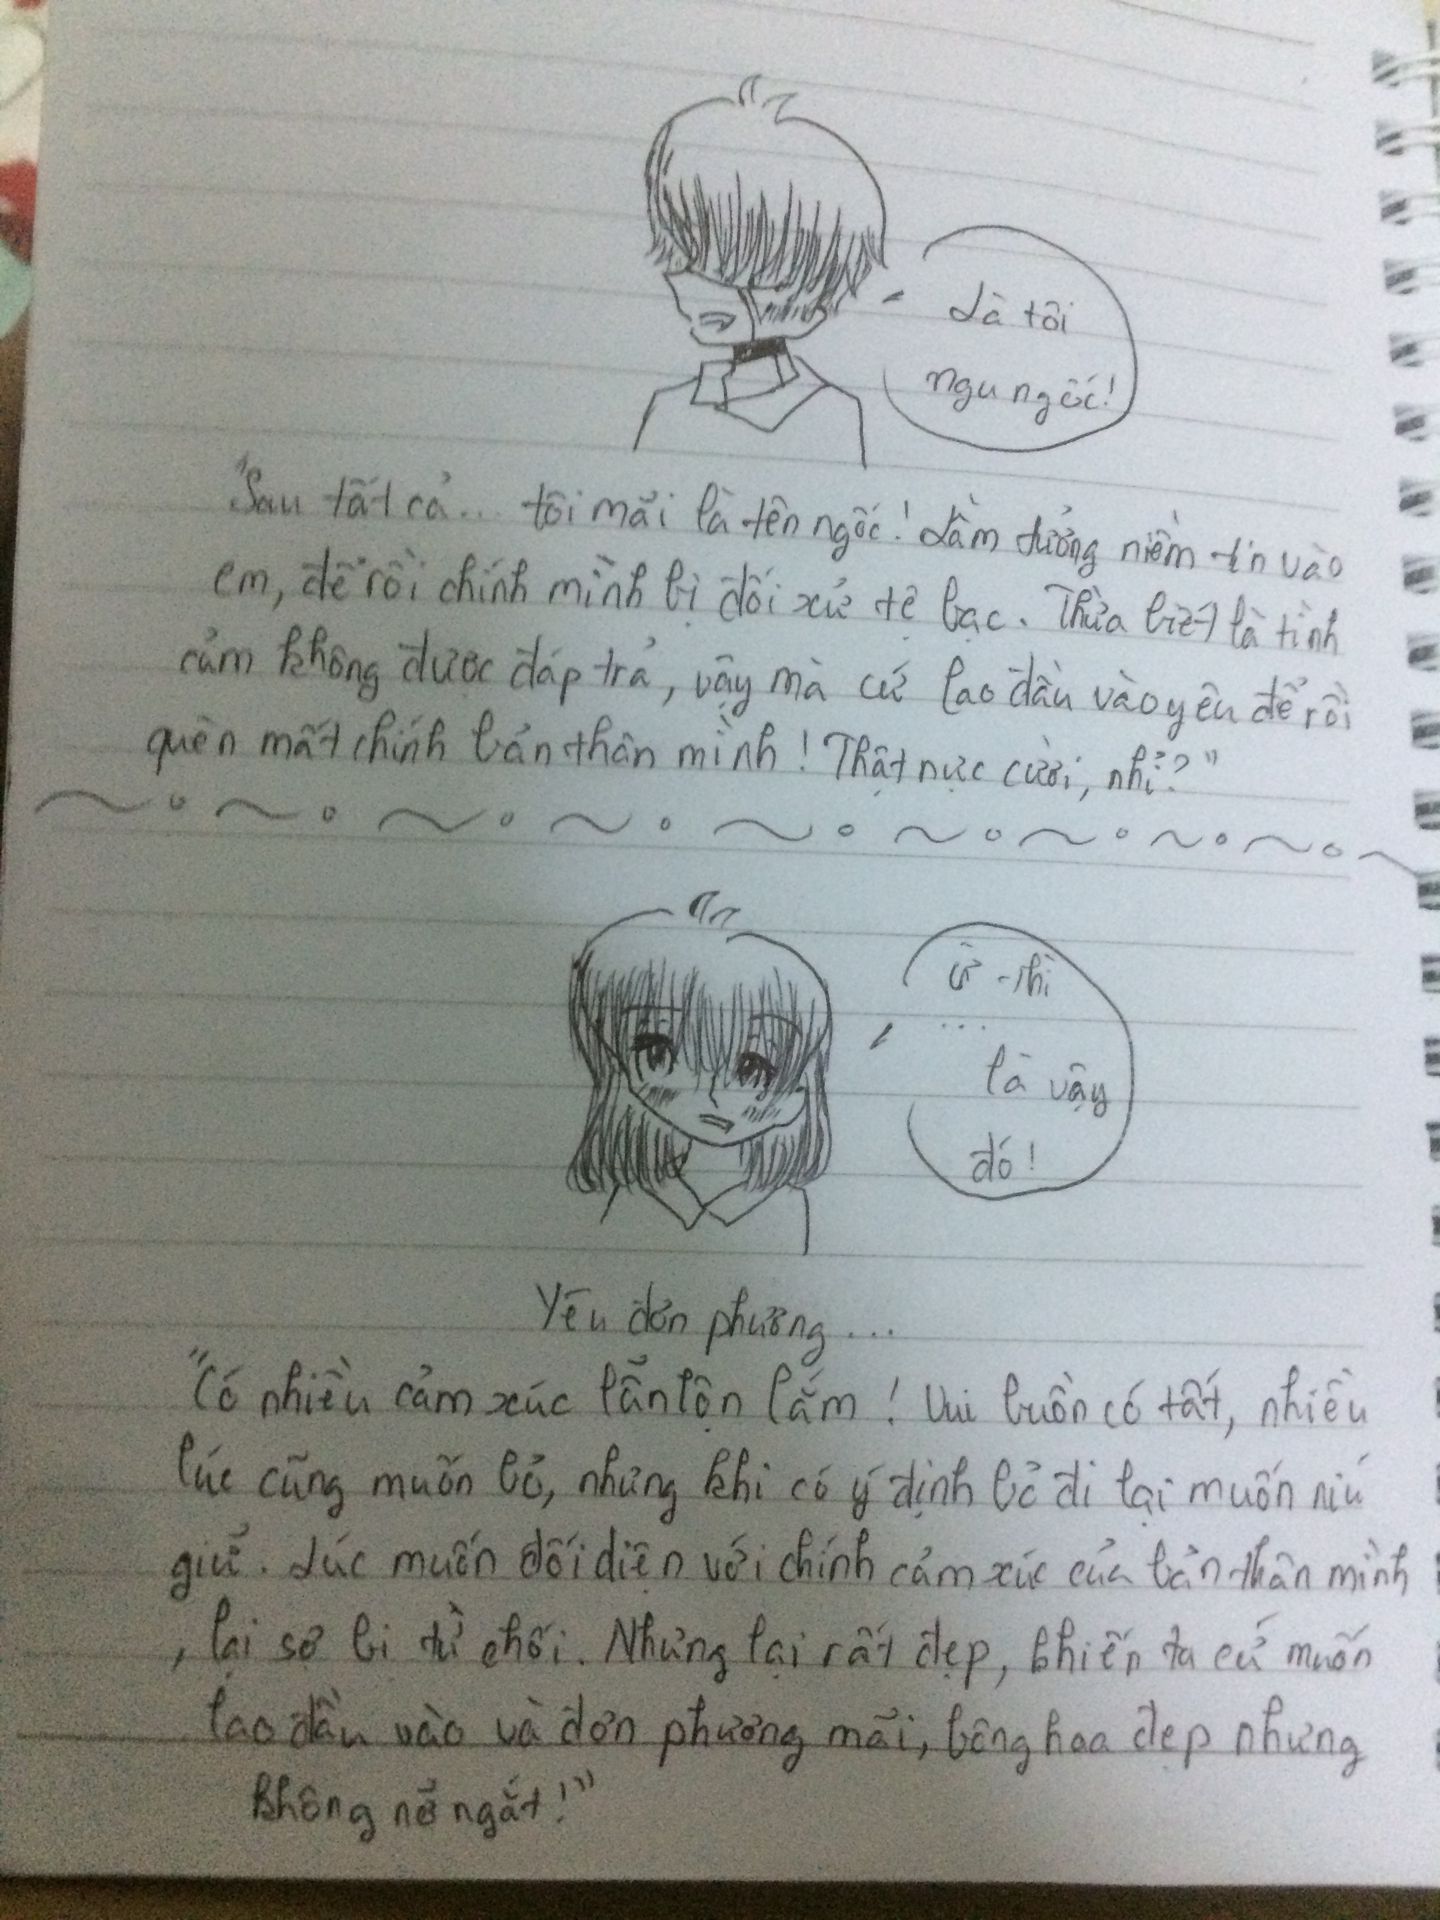 Là tôi
ngu ngốc!
"Sau tất cả... tôi mãi là tên ngốc! Lầm tưởng niềm tin vào
em, để rồi chính mình bị đối xử tệ bạc. Thừa biết là tình
cảm không được đáp trả, vậy mà cứ lao đầu vào yêu để rồi
quên mất chính bản thân mình! Thật nực cười, nhỉ?"
Ừ thì
...
là vậy
đó!
Yêu đơn phương...
"Có nhiều cảm xúc lẫn lộn lắm! Vui buồn có tất, nhiều
lúc cũng muốn bỏ, nhưng khi có ý định bỏ đi lại muốn níu
giữ. Lúc muốn đối diện với chính cảm xúc của bản thân mình
, lại sợ bị từ chối. Nhưng lại rất đẹp, khiến ta cứ muốn
lao đầu vào và đơn phương mãi, bông hoa đẹp nhưng
không nỡ ngắt!"